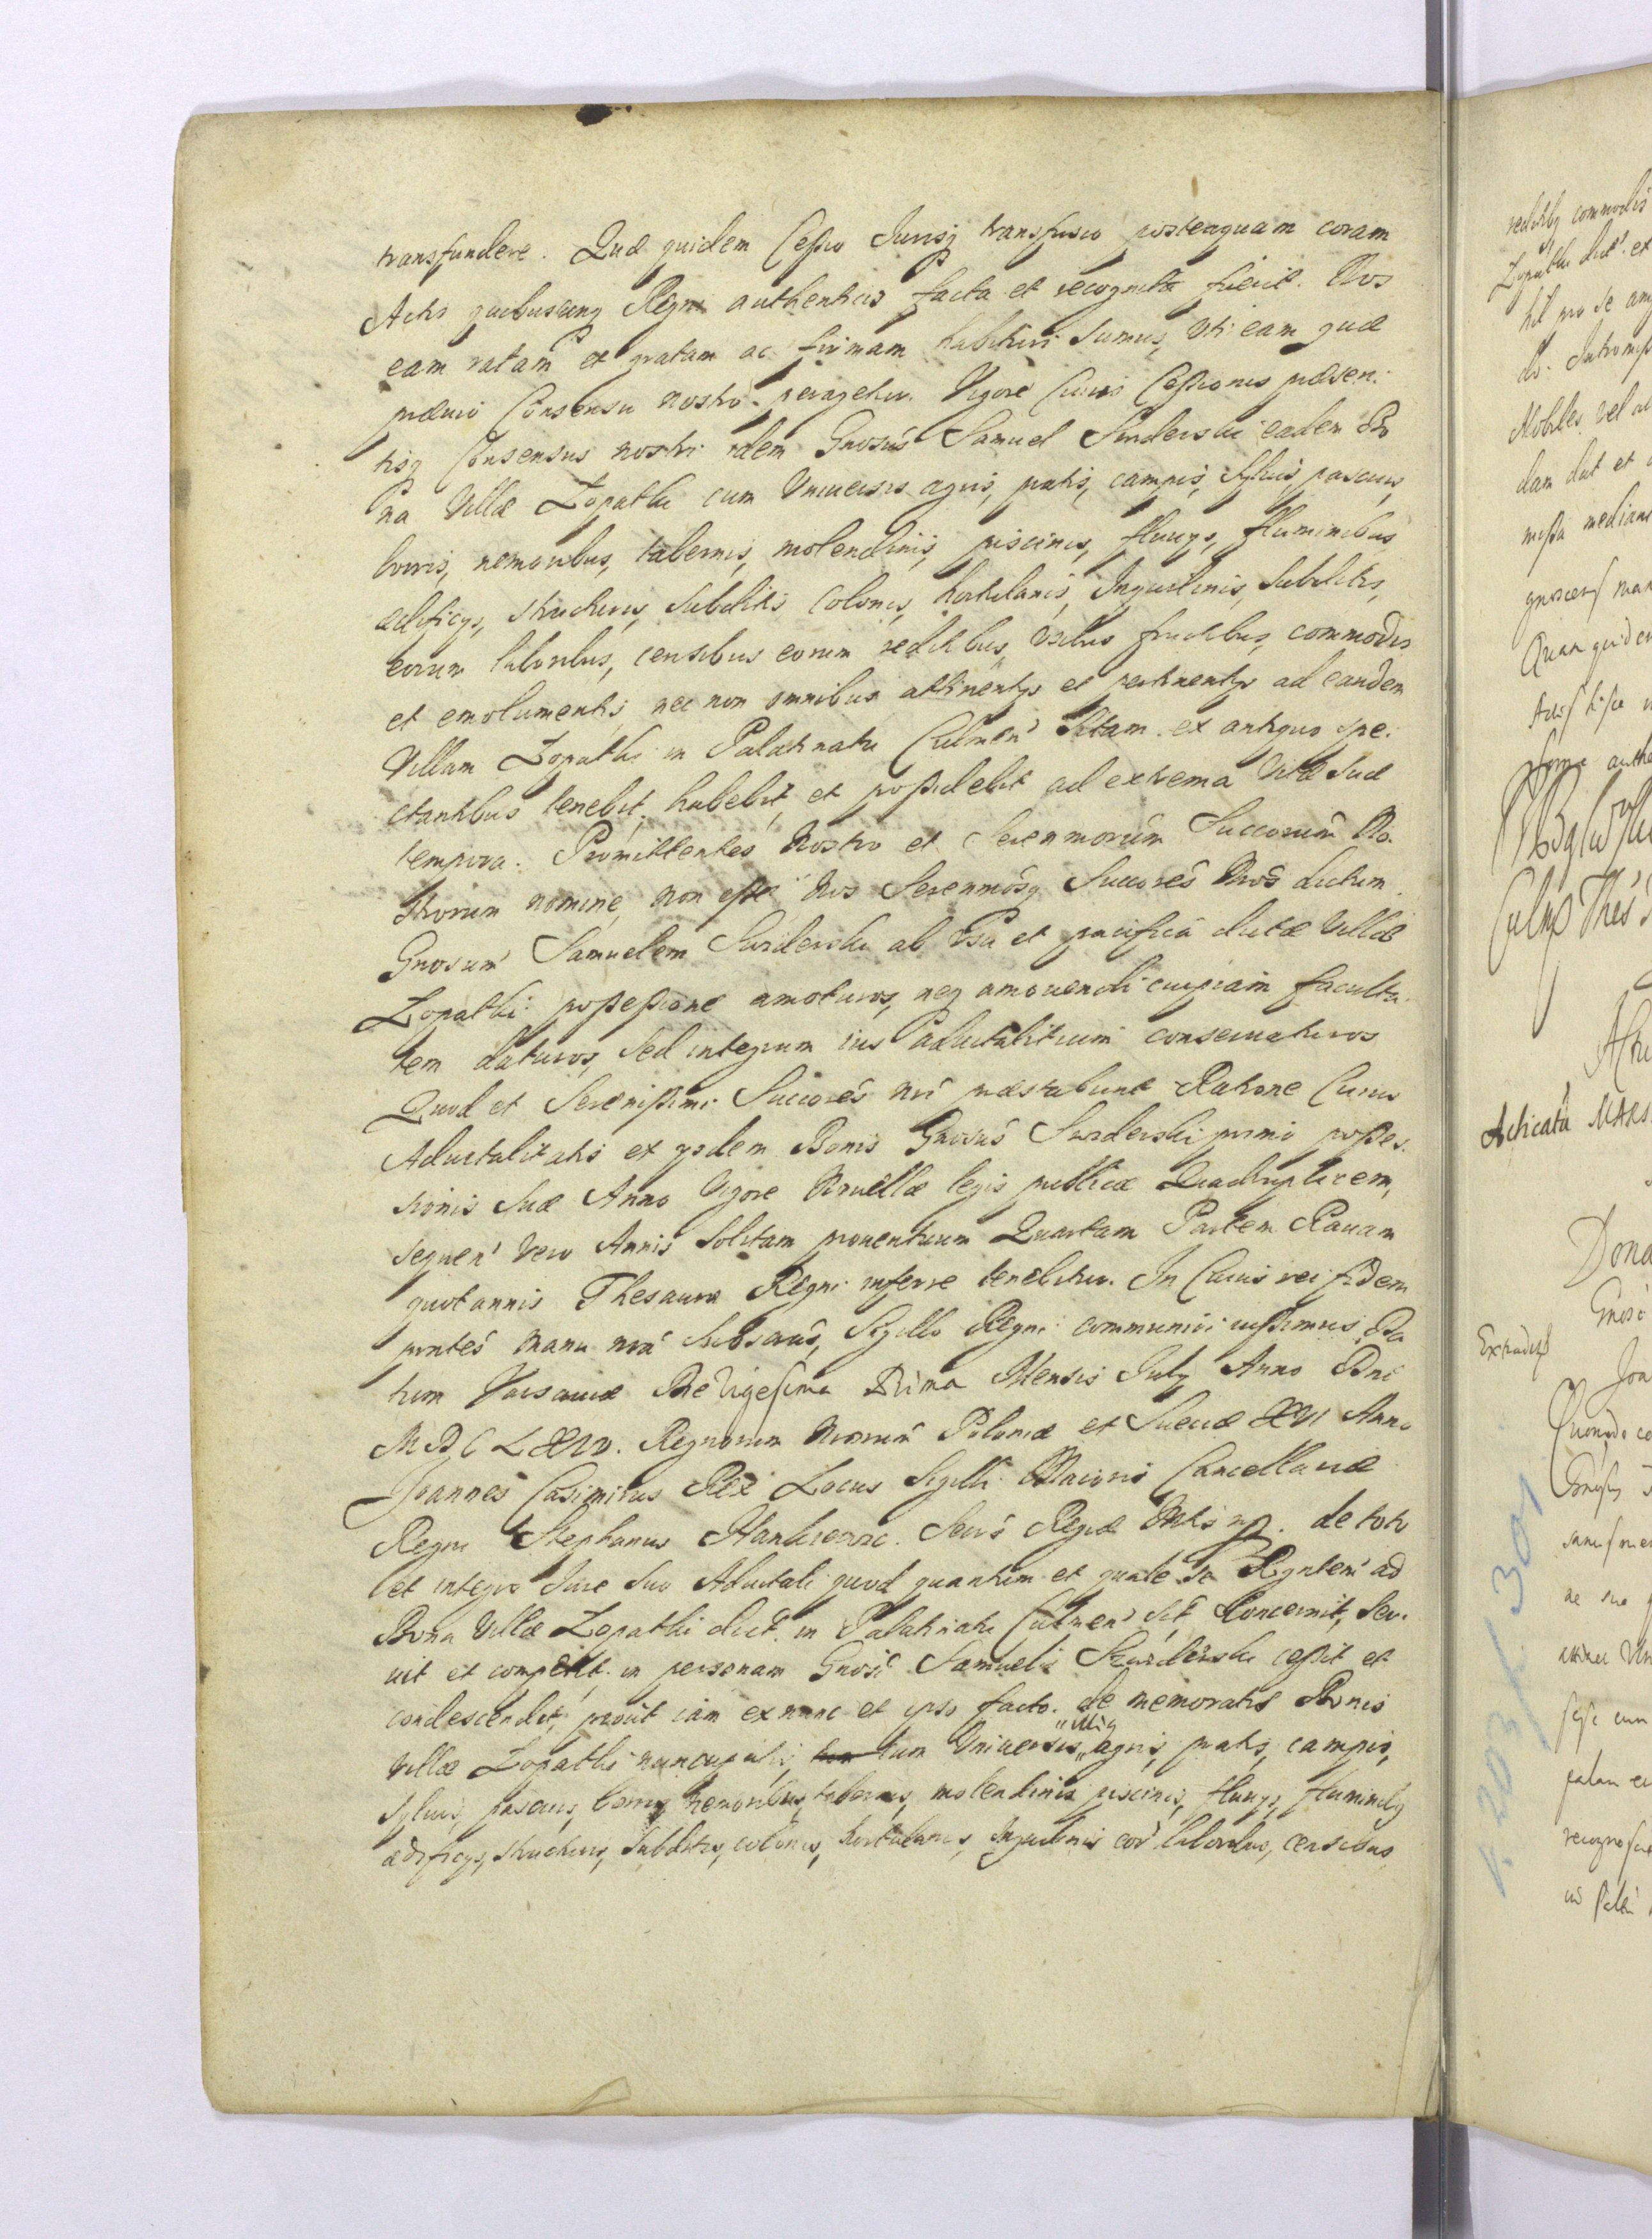 transfundere. Quæ quidem Cessio Jurisq transfusio posteaquam coram
Actis quibuscunq Regni authenticis facta et recognita fuerit. Nos
eam ratam et gratam ac firmam habituri sumus, Uti eam quæ
prævio Consensu nostro peragetur. Vigore Cuius Cessionis præsen:
tisq Consensus nostri idem Gnosus Samuel Swiderski eadem Bo
na Villæ Łopatki cum Universis agris, pratis, campis, sylvis, pascuis,
borris, nemoribus, tabernis, molendinis, piscinis, fluvys, fluminibus
ædificys, structuris, Subditis, Colonis, hortulanis, Inquilinis, Subditis,
eorum laboribus, censibus eorum reditibus, Usibus fructibus, commodis
et emolumentis, nec non omnibus attinentys et pertinentys ad eandem
Villam Łopatki in Palatinatu Culmen Sitam ex antiquo spe:
ctantibus tenebit, habebit, et possidebit ad extrema Vitæ Suæ
tempora. Promittentes Nostro et Serenmorum Succorum No:
strorum nomine, non esse Nos Serenmosq Succores Nros dictum
Gnosum Samuelem Swiderski ab Usu et pacifica dictæ Villæ
Łopatki possessione amoturos, neq amovendi cuipiam faculta:
tem daturos, Sed integrum ius Advitalitium conservaturos
Quod et Serenissimi Succores nri præstabunt Ratione Cuius
Advitalitatis ex ysdem Bonis Gnosus Swiderski primo posses:
sionis Suæ Anno Vigore Novellæ legis publicæ Quadruplicem,
sequen vero Annis Solitam proventuum Quartam Partem Ravam
quotannis Thesauro Regni inferre tenebitur. In Cuius rei fidem
pntes manu nra Subscrus, Sigillo Regni communiri iussimus Da
tum Varsaviæ Die Vigesima Prima Mensis July Anno Dni
Regnorum Nrorum Poloniæ et Sueciæ XVI Anno
Joannes Casimirus Rex Locus Sigilli Maioris Cancellariæ
Regni Stephanus Hankiewic. Secrs Regiæ Mttis mp. de toto
et integro Jure Suo Advitali quod quantum et quale Se Rgnten ad
Bona Villæ Łopatki dict. in Palatinatu Culmen Sit. Concernit, Ser:
vit et competit, in personam Gnosi Samuelis Szwiderski cessit et
condescendit, prout iam exnunc et ipso facto de memoratis Bonis
Villæ Łopatki nuncupatis, cum Universis illiq agris, pratis, campis,
Sylvis, pascuis, borris nemoribus, tabernis, molendinis piscinis, fluvys, fluminibq
ædificys, structuris, Subditis, colonis, hortulanis, Inquilinis eor laboribus, censibus